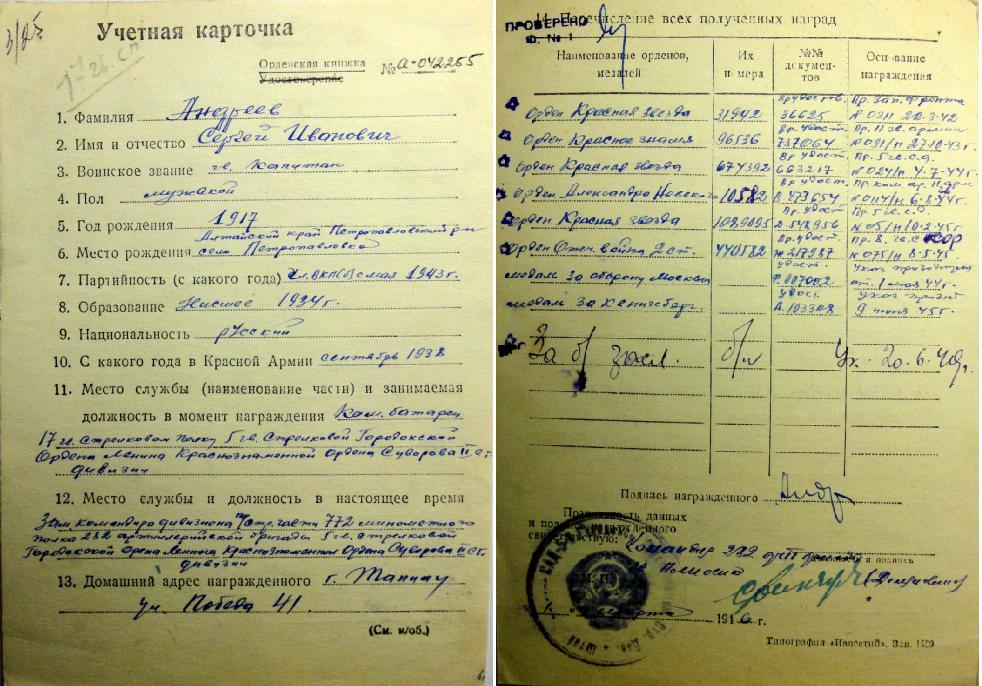 Учетная карточка
Орденская книжка № А-042255
Удостоверение
1. Фамилия Андреев
2. Имя и отчество Сергей Иванович
3. Воинское звание гв. капитан
4. Пол мужской
5. Год рождения 1917
Алтайский край Петропавловский р-н
6. Место рождения село Петропавловка
7. Партийность (с какого года) Чл. ВКП(б) с мая 1943 г.
8. Образование Низшее 1934 г.
9. Национальность русский
10. С какого года в Красной Армии сентябрь 1938
11. Место службы (наименование части) и занимаемая
должность в момент награждения Ком. батареи
17 гв. Стрелковом полку 5 гв. Стрелковой Городокской
Ордена Ленина Краснознаменной Ордена Суворова II ст.
дивизии
12. Место службы и должность в настоящее время
Зам. командира дивизиона части 772 минометного
полка 232 артиллерийской бригады 5 гв. стрелковой
Городокской Ордена Ленина Краснознаменной Ордена Суворова II ст.
дивизии
13. Домашний адрес награжденного г. Тапиау
ул. Победа 41.
(См. н/об.)
ПРОВЕРЕНО
Ф. № 1
14. Перечисление всех полученных наград
Наименование орденов, медалей
Их номера
№№ документов
Основание награждения
Орден Красная звезда 31942 Вр. удостов. 36625 Пр. Зап. Фронта № 0311 22-3-42
Орден Красное знамя 96536 Вр. удост. 737064 Пр. 11 гв. армии № 091/н 27-10-43 г.
Орден Красная звезда 674392 Вр. удост. 663217 Пр. 5 гв. с.д. № 024/н 4-7-44 г.
Орден Александра Невского 10582 Вр. удост. В 473654 № 0114/н 6.8.44 г.
Орден Красная звезда 1089095 Вр. удост. Д-548956 Пр. 5 гв. с.д. № 05/н 10-2-45 г.
Орден Отеч. война 2 ст. 440582 Вр. удост. Ж 217987 Пр. 8 гв. с. кор № 075/н 8-5-45
медаль За оборону Москвы удост. Ф. 007002 Указ от 1 мая 44 г.
медаль За Кенигсберг удост. А. 103308 указ 9 июня 45 г.
За б/ засл. б/н Ук. 20.6.49 г.
Подпись награжденного Андр
Правильность данных
и подпись награжденного
свидетельствую:
Командир 232
и подпись
М. П.
марта 1946 г.
Типография «Известий». Зак. 1529